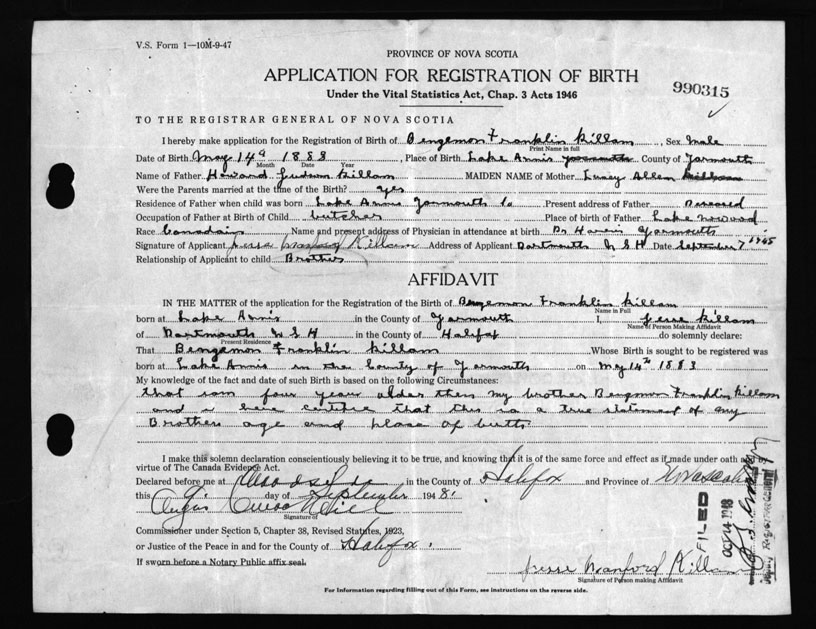 V.S. Form 1—10M-9-47
PROVINCE OF NOVA SCOTIA
APPLICATION FOR REGISTRATION OF BIRTH
Under the Vital Statistics Act, Chap. 3 Acts 1946
990315
TO THE REGISTRAR GENERAL OF NOVA SCOTIA
I hereby make application for the Registration of Birth of Bengemon Franklin Killam, Sex male
Print Name in full
Date of Birth May 14 1883, Place of Birth Lake Annis County of Yarmouth
Month Date Year
Name of Father Howard Judson Killam MAIDEN NAME of Mother Lucey Allen
Were the Parents married at the time of the Birth? yes
Residence of Father when child was born Lake Annis Yarmouth Co Present address of Father Deceased
Occupation of Father at Birth of Child butcher Place of birth of Father Lake
Race Canadain Name and present address of Physician in attendance at birth Dr Yarmouth
Signature of Applicant Jesse Killam Address of Applicant Dartmouth N S H Date September 7
Relationship of Applicant to child Brother
AFFIDAVIT
IN THE MATTER of the application for the Registration of the Birth of Bengemon Franklin Killam
Name in Full
born at Lake Annis in the County of Yarmouth I, Jesse Killam
Name of Person Making Affidavit
of Dartmouth N S H in the County of Halifax do solemnly declare:
Present Residence
That Bengemon Franklin Killam Whose Birth is sought to be registered was
born at Lake Annis in the County of Yarmouth on May 14th 1883
My knowledge of the fact and date of such Birth is based on the following Circumstances:
that I am four years older then my brother Bengemon Franklin Killam
and i here certifie that this is a true statement of my
Brothers age and place of birth
I make this solemn declaration conscientiously believing it to be true, and knowing that it is of the same force and effect as if made under oath and by
virtue of The Canada Evidence Act.
Declared before me at Woodside in the County of Halifax and Province of Nova Scotia
this 9 day of September 1948.
Angus
Signature of
Commissioner under Section 5, Chapter 38, Revised Statutes, 1923,
or Justice of the Peace in and for the County of Halifax.
If sworn before a Notary Public affix seal.
Jesse Killam
Signature of Person making Affidavit
FILED
OCT 14 1948
For Information regarding filling out of this Form, see instructions on the reverse side.